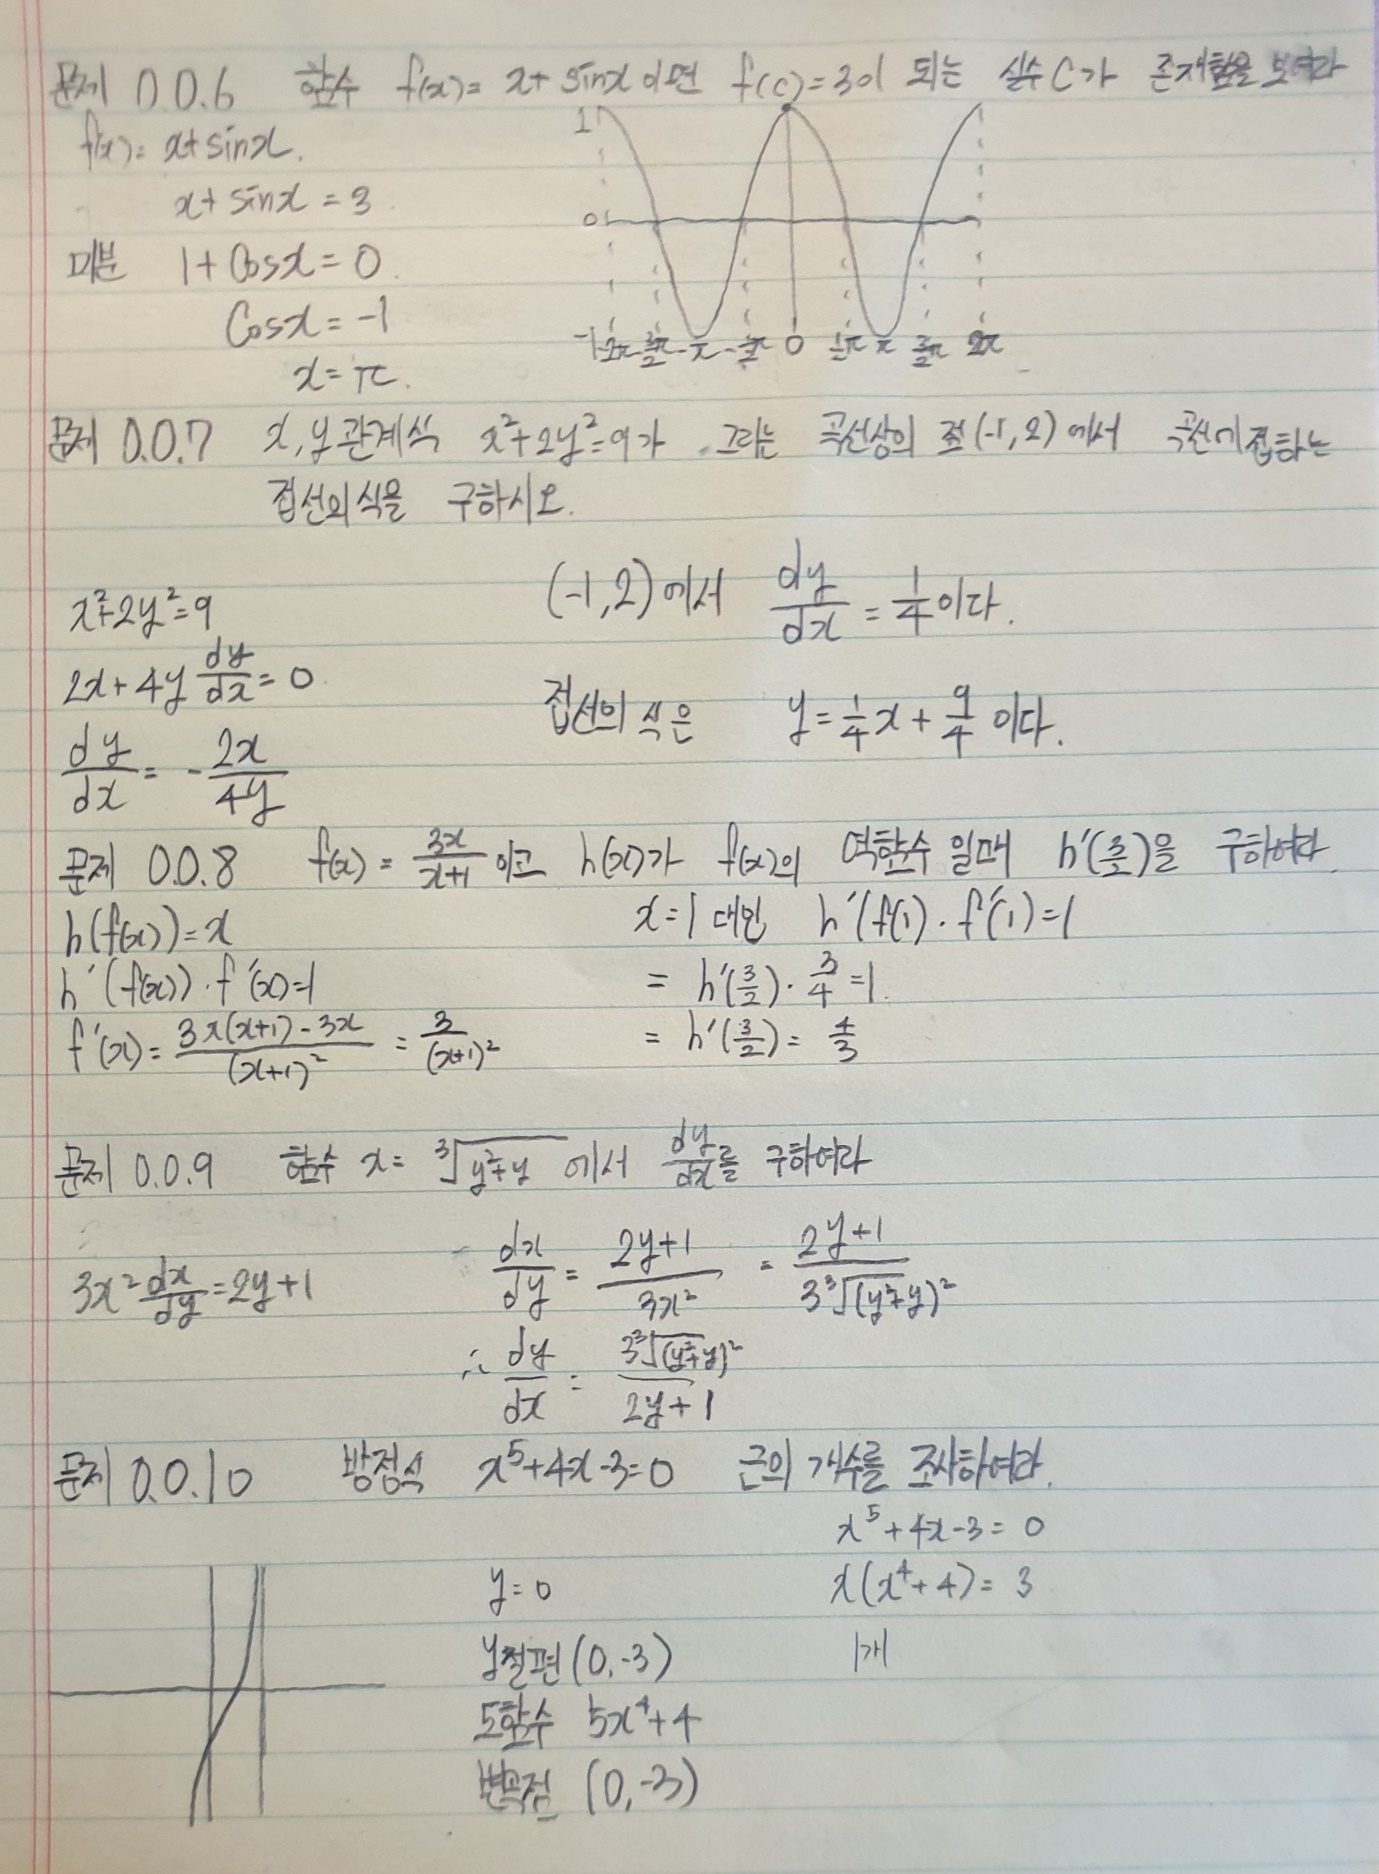 문제 0.0.6 함수 f(x)= x+ sinx 이면 f(c)=3이 되는 실수 C가 존재함을 보여라
f(x)= x+sinx.
x+ sinx = 3
미분 1+ Cosx = 0.
Cosx = -1
x= π.
1
0
-1 -2π -3/2π -π -1/2π 0 1/2π π 3/2π 2π
문제 0.0.7 x, y 관계식 x²+2y²=9가 그리는 곡선상의 점(-1, 2)에서 곡선에 접하는
접선의 식을 구하시오.
x²+2y²=9
2x+4y dy/dx = 0
dy/dx = - 2x/4y
(-1, 2)에서 dy/dx = 1/4 이다.
접선의 식은 y= 1/4 x + 9/4 이다.
문제 0.0.8 f(x) = 3x/x+1 이고 h(x)가 f(x)의 역함수 일때 h'(3/2)을 구하여라
h(f(x))=x
h'(f(x))·f'(x)=1
f'(x)= 3x(x+1)-3x/(x+1)² = 3/(x+1)²
x=1 대입 h'(f(1)·f'(1)=1
= h'(3/2)· 3/4 =1.
= h'(3/2)= 4/3
문제 0.0.9 함수 x= ³√y²+y 에서 dy/dx를 구하여라
3x² dx/dy =2y+1
dx/dy = 2y+1/3x² = 2y+1/3³√(y²+y)²
∴ dy/dx = 3³√(y²+y)²/2y+1
문제 0.0.10 방정식 x⁵+4x-3=0 근의 개수를 조사하여라.
x⁵+4x-3= 0
x(x⁴+4)= 3
1개
y=0
y절편 (0,-3)
도함수 5x⁴+4
변곡점 (0,-3)